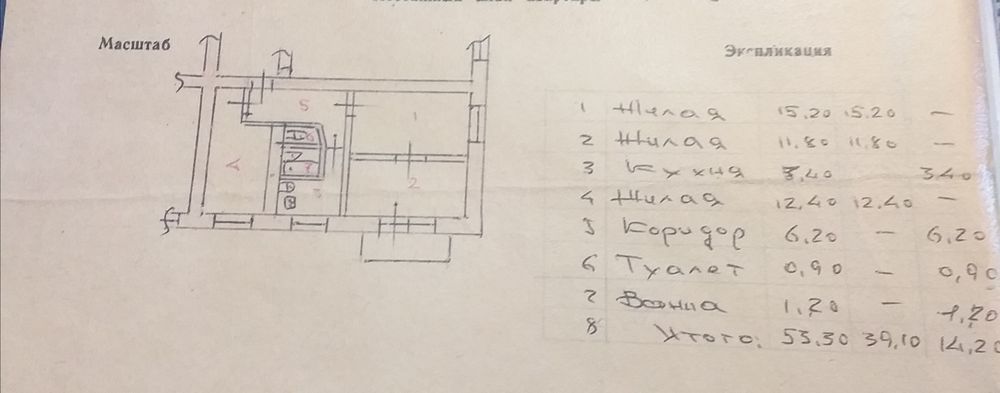 Масштаб
Экспликация
1 Жилая 15,20 15,20 —
2 Жилая 11,80 11,80 —
3 Кухня 3,40 3,40
4 Жилая 12,40 12,40 —
5 Коридор 6,20 — 6,20
6 Туалет 0,90 — 0,90
7 Ванна 1,20 — 1,20
8 Итого: 53,30 39,10 14,20
5
1
6
4
7
2
3